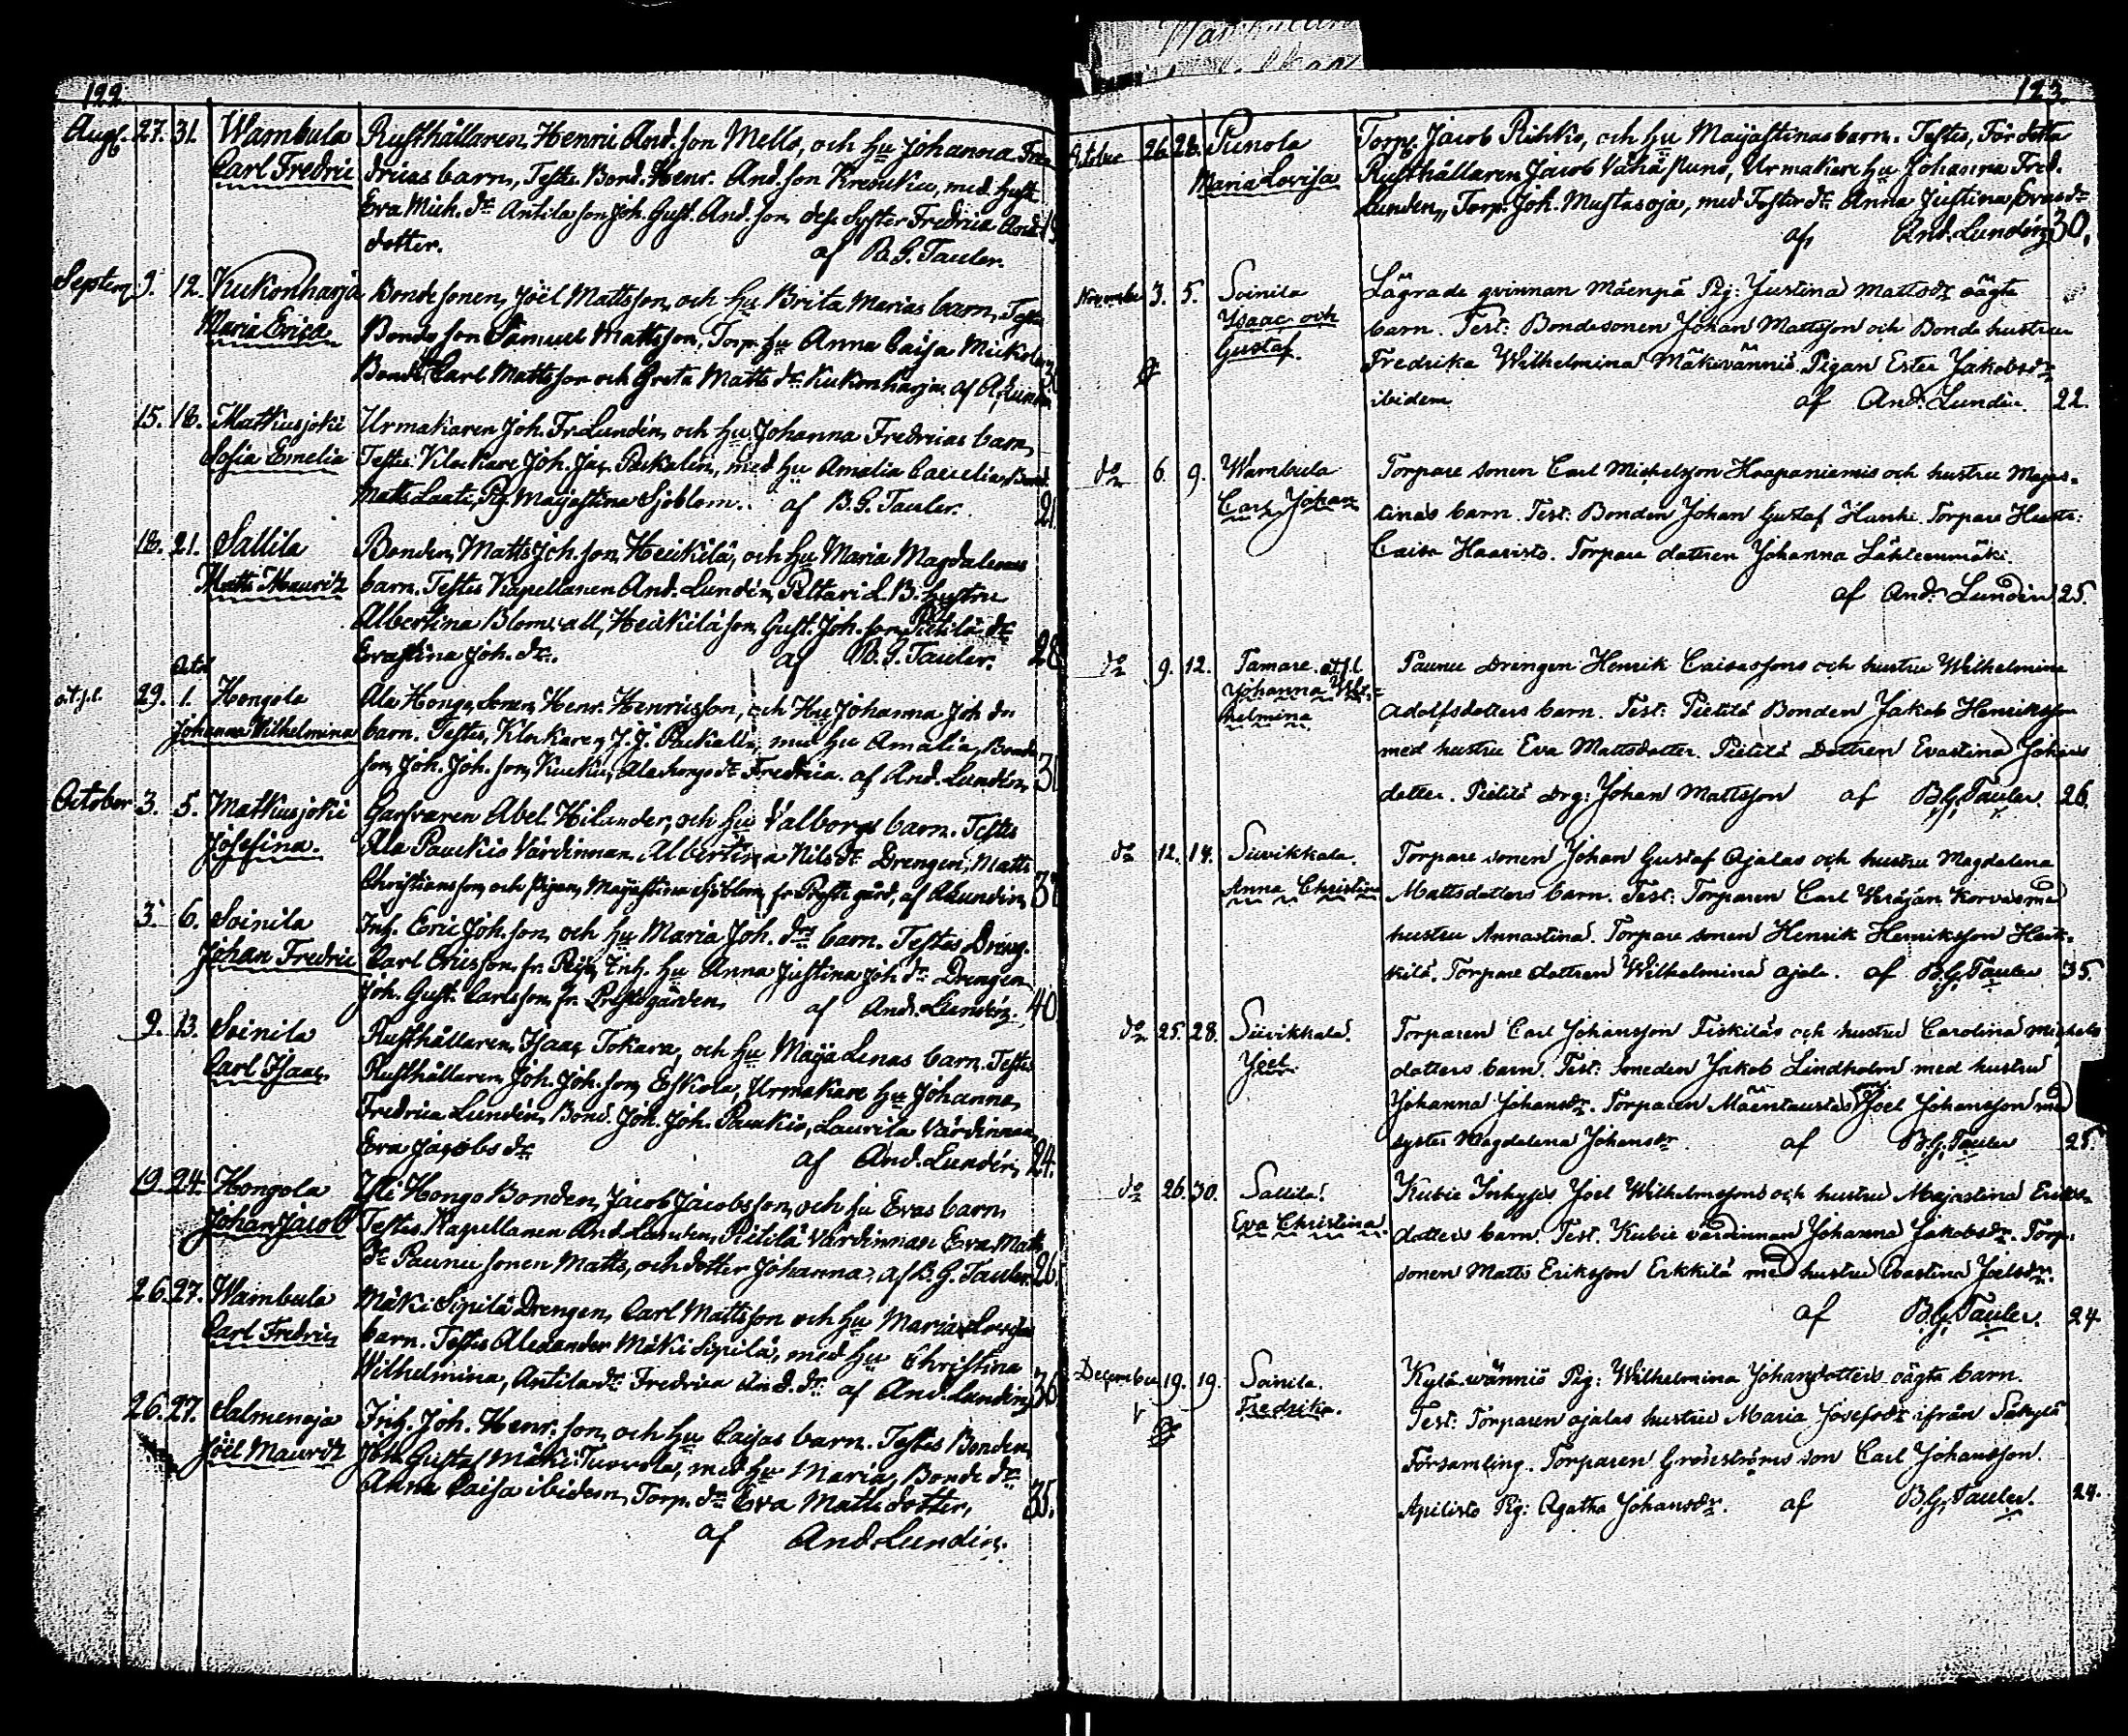 122
Augt. 27. 31. Wambula Rusthållaren Henric And.son Mello, och hu Johanna Fre
Carl Fredric dricas barn, Testes Bond. Henr. And.son Krouvikku, med hustr
Eva Mich. dr Antila son Joh. Gust. And.son, dess Syster Fredrica And
dotter. af B. G. Tauler.
Septem 9. 12. Kukonharja Bonde sonen, Joël Mattsson, och hu Brita Marias barn, Testes
Maria Erica Bonde son Samuel Mattsson, Torp. hu Anna Caisa
Bond. Carl Mattsson och Greta Matts dr Kukonharja. af A. Lundén
15. 18. Matkusjoki Urmakaren Joh. Fr. Lundén, och hu Johanna Fredricas barn,
Sofia Emelia Testes Klockare Joh. Jac. Packalén, med hu Amalia
Matts Laati, Pig. Maijastina Sjöblom. af B. G. Tauler. 21
18. 21. Sallila Bonden, Matts Joh.son Heickilä, och hu Maria Magdalenas
Matts Mauritz barn. Testes Kapellanen And. Lundén, Peltari L. B. hustru
Albertina Blomvall, Heickilä son Gust. Joh.son, Pietilä dr
Evastina Joh. dr. af B. G. Tauler. 28
Octob
29. 1. Hongola Ala Hongo, Sonen, Henr. Henricsson, och Hu Johanna Joh dr
Johanna Wilhelmina barn. Testes, Klockaren J. J. Packalén, med hu Amalia, Bonde
son, Joh. Joh.son, Kucku, Alahongo dr Fredrica. af And. Lundén, 31
October 3. 5. Matkusjoki Garfvaren Abel Hilander, och hu Valborgs barn. Testes
Josefina. Ala Pauckio Värdinnan, Albertina Nils dr Drengen, Matts
Christiansson, och Pigan, Maijastina Sjöblom, fr. Prestegård, af A Lundén, 37
3. 6. Soinila Inh. Eric Joh.son, och hu Maria Joh. drs barn. Testes Dreng.
Johan Fredric Carl Ericsson, fr. Inh. hu Anna Justina Joh dr. Drengen
Joh. Gust. Carlsson, fr. Prestgården, af And. Lundén. 40
9. 13. Soinila Rusthållaren, Isaac Tokara, och hu Maija Lenas barn. Testes
Carl Isaac Rusthållaren, Joh. Joh.son, Eskola, Urmakare hu Johanna,
Fredrica Lundén, Bond. Joh. Joh. Pauckio, Laurila Värdinnan,
Eva Jacobs dr af And. Lundén, 24.
19. 24. Hongola Yli Hongo Bonden, Jacob Jacobsson, och hu Evas barn
Johan Jacob Testes. Kapellanen And. Lundén, Pietilä Värdinnan Eva Matts
dr Paunu sonen Matts, och dotter Johanna, af B. G. Tauler. 26
26. 27. Wambula Mäki Sipilä Drengen, Carl Mattsson och hu Maria Lovisas
Carl Fredric barn. Testes Alexander Mäki Sipilä, med hu Christina
Wilhelmina, Antila dr Fredrica And. dr af And. Lundén, 36
26. 27. Salmenoja Inh. Joh. Henr.son, och hu Caisas barn. Testes Bonden,
Joël Mauritz Joh. Gustaf Mäki Tuorola, med hu Maria, Bonde dr
Anna Caisa ibidem, Torp. dr Eva Mattsdotter, 35.
af And. Lundén.
123.
October 26. 28. Punola Torp. Jacob Rihko, och hu Maijastinas barn. Testes, För detta
Maria Lovisa Rusthållaren Jacob Vähä Runo, Urmakare hu Johanna Fred.
Lundén, Torp. Joh. Mustasoja, med Foster dr Anna Justina Evas dr
af And. Lundén, 30.
November 3. 5. Soinila Lägrade qvinnan Mäenpä Pig: Justina Mattsdr oägta
Isaac och barn. Test: Bondesonen Johan Mattsson och Bonde hustru
Gustaf. Fredrika Wilhelmina Mäkivännis. Pigan Ester Jakobsdr
ibidem af And. Lundén. 22.
do 6. 9. Wambula Torpare sonen Carl Michelsson Haapaniemis och hustru Majas-
Carl Johan tinas barn. Test: Bonden Johan Gustaf Hanhi. Torpare Hustr:
Caisa Haaristo. Torpare dottren Johanna Lähteenmäki.
af And. Lundén 25.
do 9. 12. Tamare. Paunu Drengen Henrik Caisassons och hustru Wilhelmina
Johanna Wil-
helmina Adolfsdotters barn. Test: Pietilä Bonden Jakob Henriksson
med hustru Eva Mattsdotter. Pietilä Dottren Evastina Johans
dotter. Pietilä Drg: Johan Mattsson af B. G. Tauler. 26.
do 12. 14. Suvikkala. Torpare sonen Johan Gustaf Ajalas och hustru Magdalena
Anna Christina Mattsdotters barn. Test: Torparen Carl Korvas med
hustru Annastina. Torpare sonen Henrik Henriksson Heik-
kilä. Torpare dottren Wilhelmina ajala. af B. G. Tauler 35.
do 25. 28. Suvikkala. Torparen Carl Johansson Tiskiläs och hustru Carolina Michels
Joel dotters barn. Test: Smeden Jakob Lindholm med hustru
Johanna Johansdr. Torparen Mäentaustas son Joel Johansson med
syster Magdalena Johansdr. af B. G. Tauler 25.
do 26. 30. Sallila. Kubie Inhyses Joel Wilhelmssons och hustru Majastina Eriks-
Eva Christina. dotters barn. Test. Kubie värdinnan Johanna Jakobsdr. Torp.
sonen Matts Eriksson Erkkilä med hustru Evastina Joelsdr.
af B. G. Tauler. 24
December 19. 19. Soinila. Kylä-wännis Pig: Wilhelmina Johansdotters oägta barn.
Fredrika. Test: Torparen ajalas hustru Maria Josefsdr ifrån Säkylä
Församling. Torparen Grönströms son Carl Johansson.
Apilisto Pig: Agatha Johansdr. af B. G. Tauler. 24.